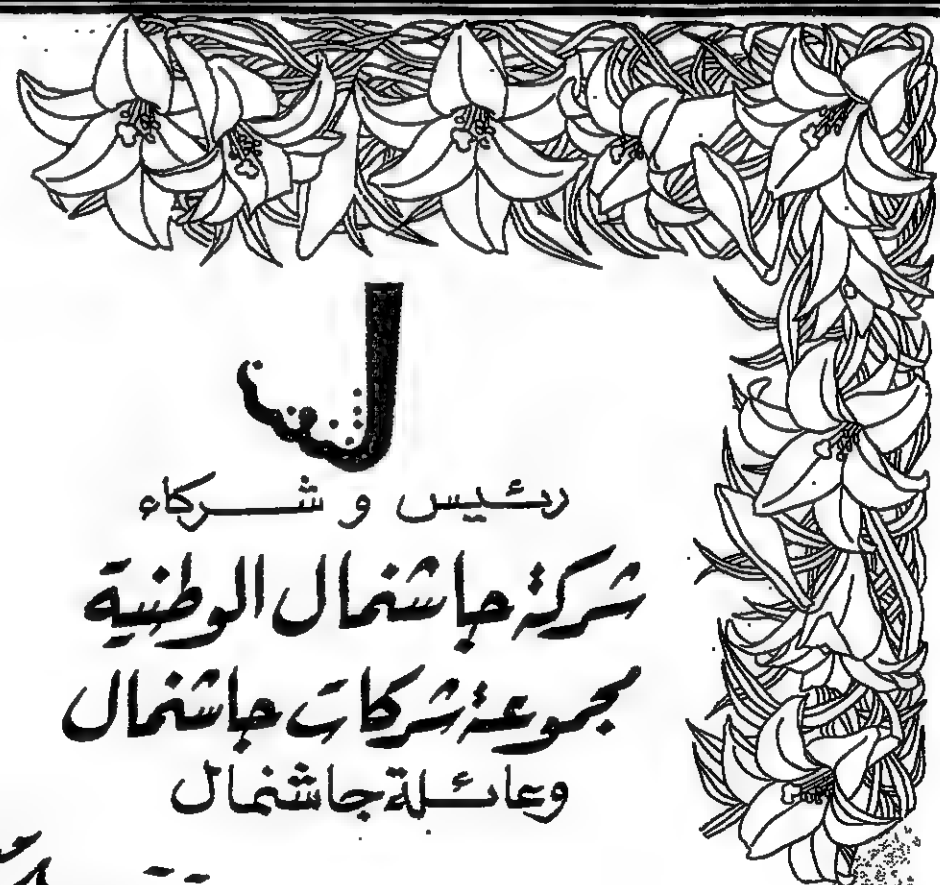 رئيس و شركاء
شركة جاشنمال الوطنية
مجموعة شركات جاشنمال
وعائلة جاشنمال